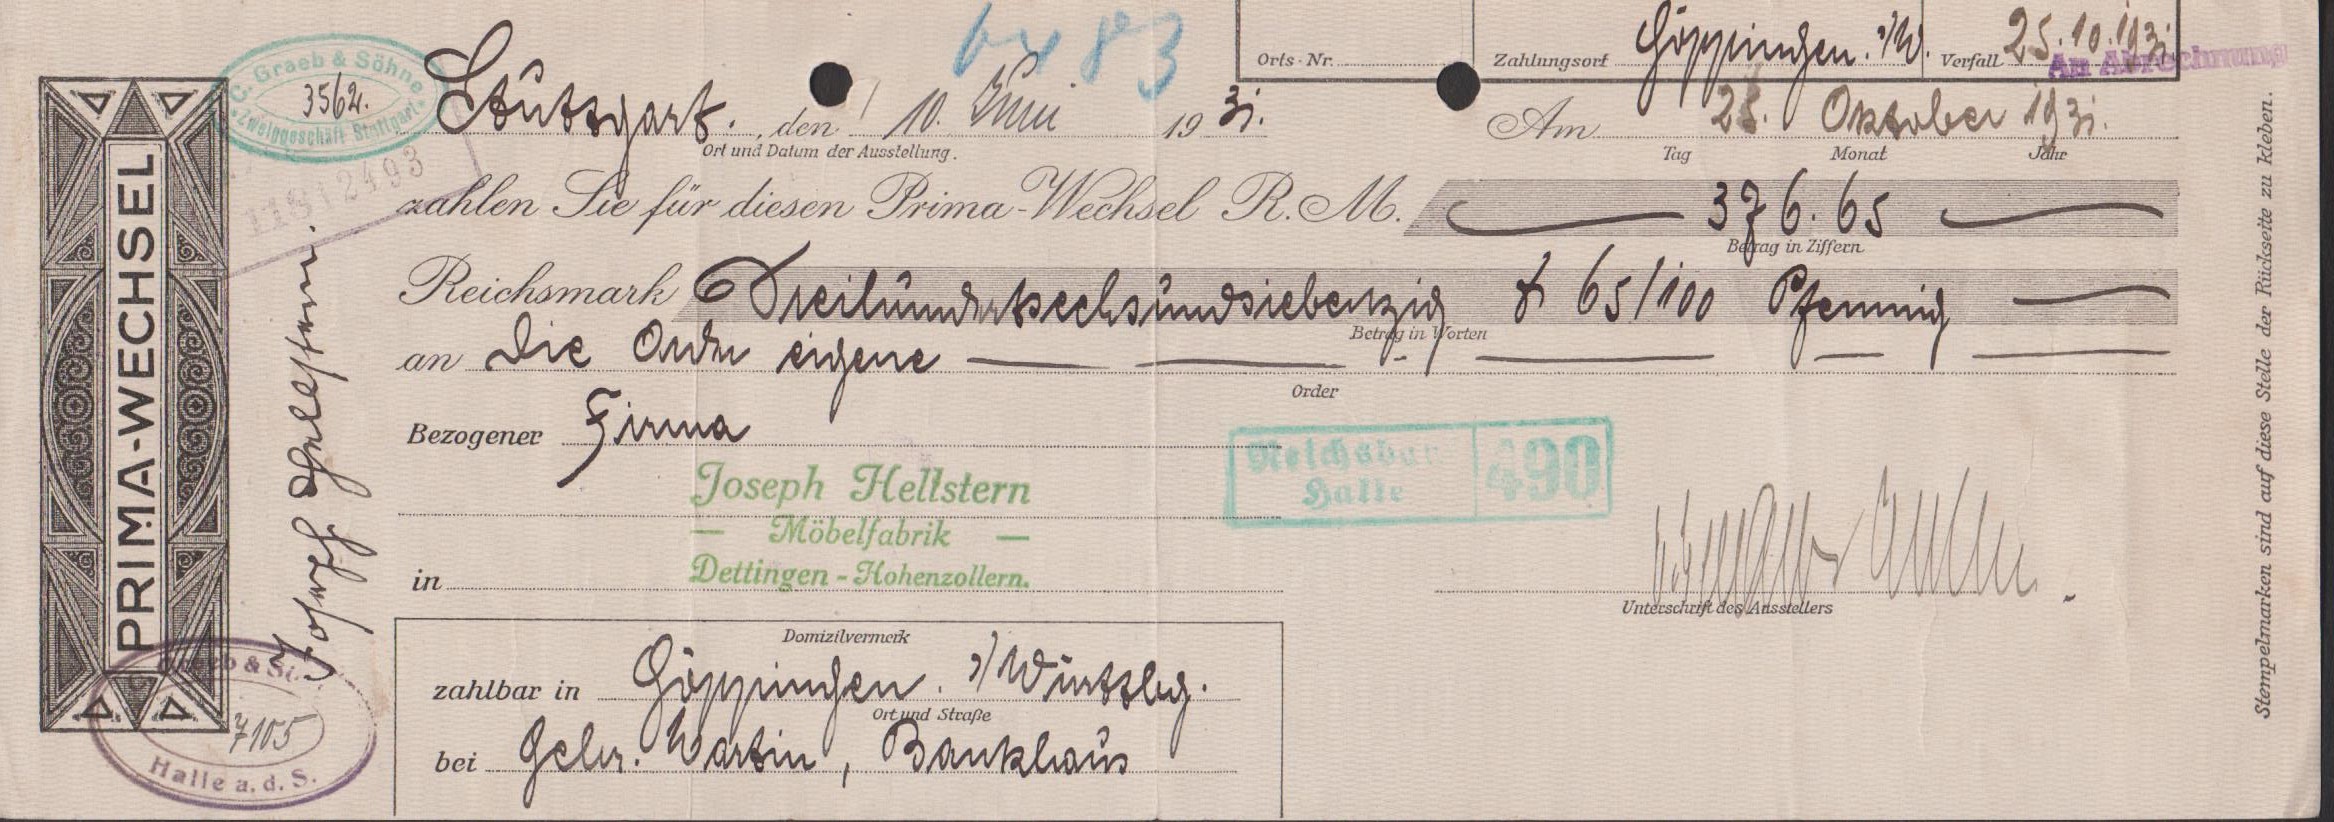 6483
Orts-Nr. Zahlungsort Göppingen. /W. Verfall 25.10.193i
An Abrechnung
C. Graeb & Söhne
3562.
Zweiggeschäft Stuttgart
Stuttgart. , den 10. Juni 193i.
Ort und Datum der Ausstellung.
Am 25. Oktober 193i.
Tag Monat Jahr
zahlen Sie für diesen Prima-Wechsel R.M. 376.65
Betrag in Ziffern
Reichsmark Dreihundertsechsundsiebenzig & 65/100 Pfennig
Betrag in Worten
an die Order eigene
Order
Bezogener Firma
Joseph Hellstern
— Möbelfabrik —
in Dettingen - Hohenzollern.
Reichsbank
Halle
490
Unterschrift des Ausstellers
Domizilvermerk
zahlbar in Göppingen. /Württbg.
Ort und Straße
bei Gebr. Martin, Bankhaus
PRIMA-WECHSEL
Joseph Hellstern.
Graeb & Sö
7105
Halle a. d. S.
Stempelmarken sind auf diese Stelle der Rückseite zu kleben.